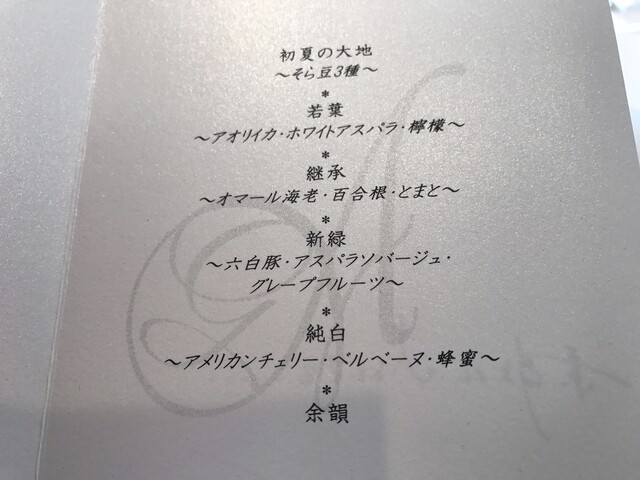 初夏の大地
～そら豆3種～
*
若葉
～アオリイカ・ホワイトアスパラ・檸檬～
*
継承
～オマール海老・百合根・とまと～
*
新緑
～六白豚・アスパラソバージュ・
グレープフルーツ～
*
純白
～アメリカンチェリー・ベルベーヌ・蜂蜜～
*
余韻